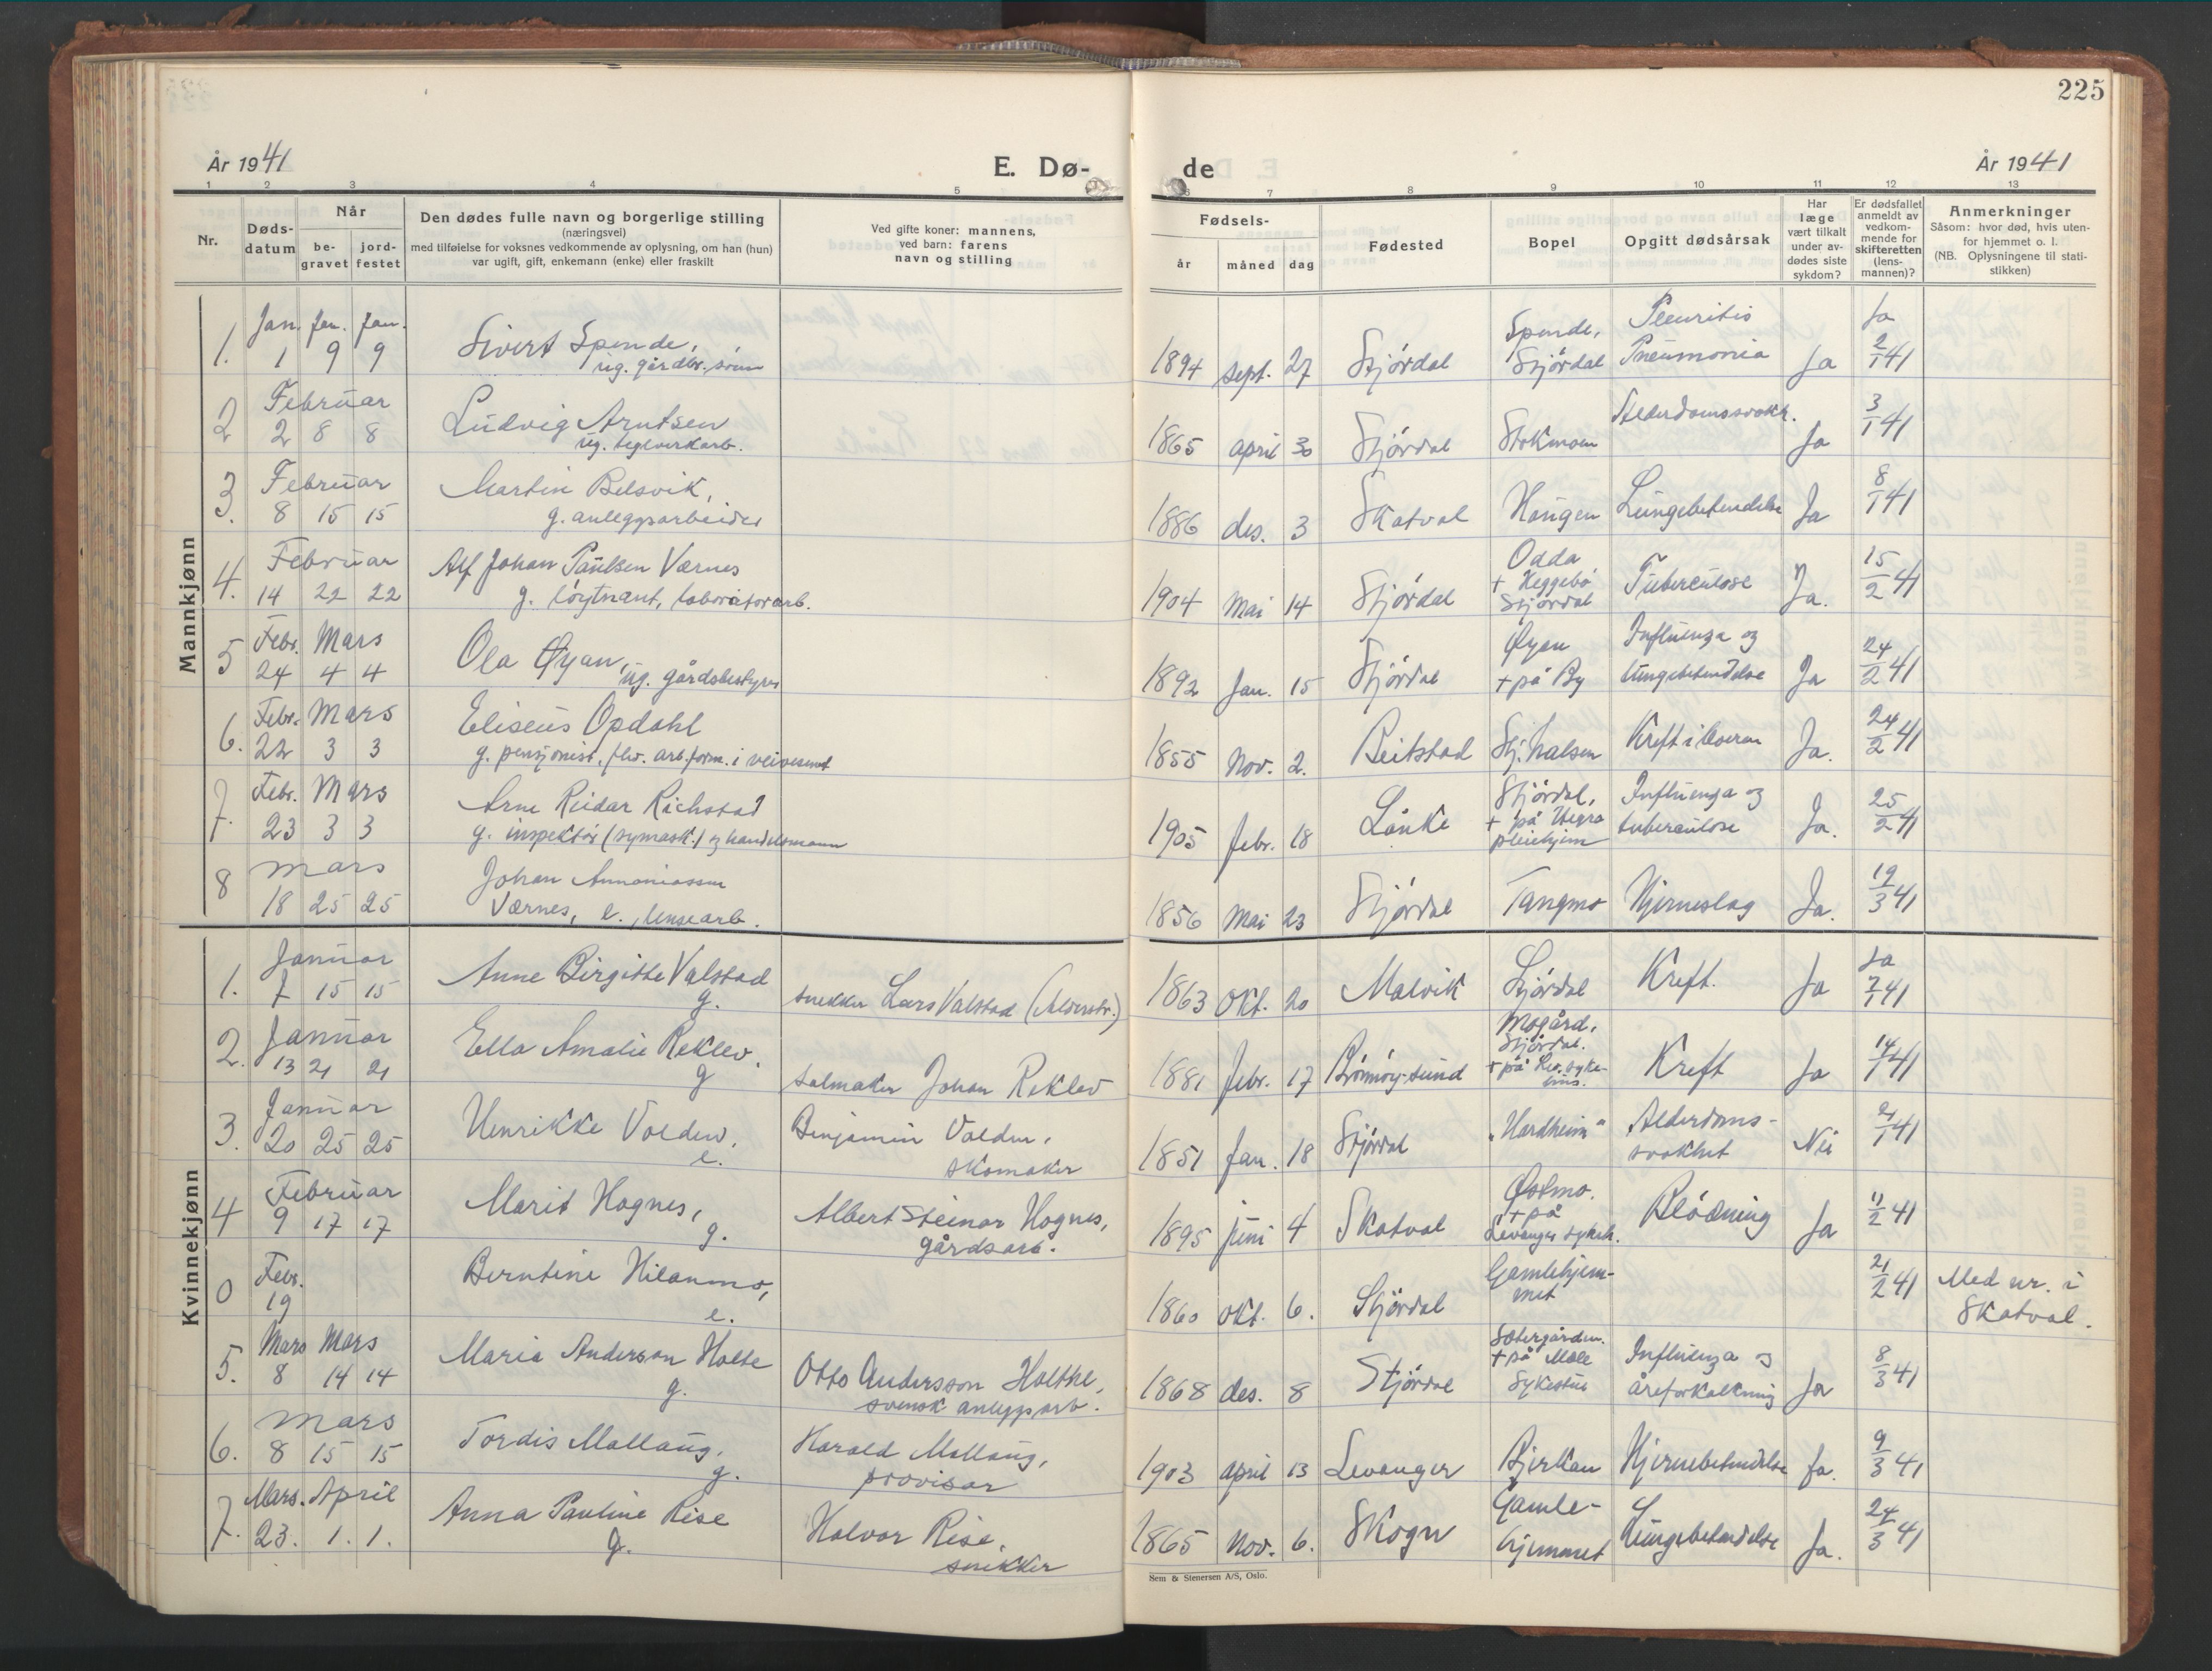 225
År 1941
E. Dø-
de
År 1941
1 2 3 4 5 6 7 8 9 10 11 12 13
Nr.
Døds-
datum
Når
be-
gravet
jord-
festet
Den dødes fulle navn og borgerlige stilling
(næringsvei)
med tilføielse for voksnes vedkommende av oplysning, om han (hun)
var ugift, gift, enkemann (enke) eller fraskilt
Ved gifte koner: mannens,
ved barn: farens
navn og stilling
Fødsels-
år måned dag
Fødested
Bopel
Opgitt dødsårsak
Har
læge
vært tilkalt
under av-
dødes siste
sykdom?
Er dødsfallet
anmeldt av
vedkom-
mende for
skifteretten
(lens-
mannen)?
Anmerkninger
Såsom: hvor død, hvis uten-
for hjemmet o. l.
(NB. Oplysningene til stati-
stikken)
Mannkjønn
1. Jan. 1 Jan. 9 Jan. 9 Sivert Spende,
ug. gårdbr. sønn
1894 sept. 27 Stjørdal Spende, Stjørdal Pleuritis Pneumonia Ja Ja 2/1 41
2 Februar 2 8 8 Ludvig Arntsen
ug. teglverkarb.
1865 april 30 Stjørdal Stokmoen Alderdomssvakh. Ja 3/1 41
3. Februar 8 15 15 Martin Belsvik,
g. anleggsarbeider
1886 des. 3 Skatval Haugen Lungebetendelse Ja 8/1 41
4. Februar 14 22 22 Alf Johan Paulsen Værnes
g. løytnant, laboratorarb.
1904 Mai 14 Stjørdal Odda + Heggebø Stjørdal Tuberculose Ja. 15/2 41
5 Febr. 24 Mars 4 4 Ola Øyan,
ug. gårdsbestyrer
1892 Jan. 15 Stjørdal Øyan + på By Influenza og lungebetendelse Ja 24/2 41
6. Febr. 22 Mars 3 3 Eliseus Opdahl
g. pensjonist, fhv. arb.form. i veivesenet
1855 Nov. 2. Beitstad Stj.halsen Kreft i leveren Ja. 24/2 41
7. Febr. 23 Mars 3 3 Arne Reidar Richstad
g. inspektør (symask.) og handelsmann
1905 febr. 18 Lånke Stjørdal, + på Hegra pleiehjem Influenza og tuberculose Ja. 25/2 41
8 Mars 18 25 25 Johan Annaniassen
Værnes, e., lensearb.
1856 Mai 23 Stjørdal Tangmo Hjerneslag Ja. 19/3 41
Kvinnekjønn
1. Januar 7 15 15 Anne Birgitte Valstad
g. snekker Lars Valstad (Alderstr.)
1863 Okt. 20 Malvik Stjørdal Kreft. Ja Ja 7/1 41
2. Januar 13 21 21 Ella Amalie Reklev.
g salmaker Johan Reklev
1881 febr. 17 Brønnøysund Mogård, Stjørdal. + på Lev. sykehus. Kreft Ja 14/1 41
3. Januar 20 25 25 Henrikke Volden,
e. Benjamin Volden,
skomaker
1851 Jan. 18 Stjørdal "Hardheim" Alderdoms-
svakhet Nei 21/1 41
4 Februar 9 17 17 Marit Hognes,
g. Albert Steinar Hognes,
gårdsarb.
1895 juni 4 Skatval Østmo. + på Levanger sykeh. Blødning Ja 11/2 41
0 Febr. 19 Berntine Hilanmo,
e.
1860 okt. 6. Stjørdal Gamlehjem-
met 21/2 41 Med nr. i
Skatval.
5. Mars 8 Mars 14 14 Maria Anderson Holte
g. Otto Andersson Holthe,
svensk anleggsarb.
1868 des. 8 Stjørdal + på Mæle Sykestue Influenza og
åreforkalkning Ja 8/3 41
6. Mars 8 15 15 Tordis Mollaug,
g. Harald Mollaug,
provisor
1903 april 13 Levanger Bjerkan Hjernebetendelse Ja. 9/3 41
7. Mars. 23. April 1. 1. Anna Pauline Rise
g. Halvor Rise,
snekker
1865 Nov. 6. Skogn Gamle-
hjemmet Lungebetendelse Ja. 24/3 41
Sem & Stenersen A/S, Oslo.